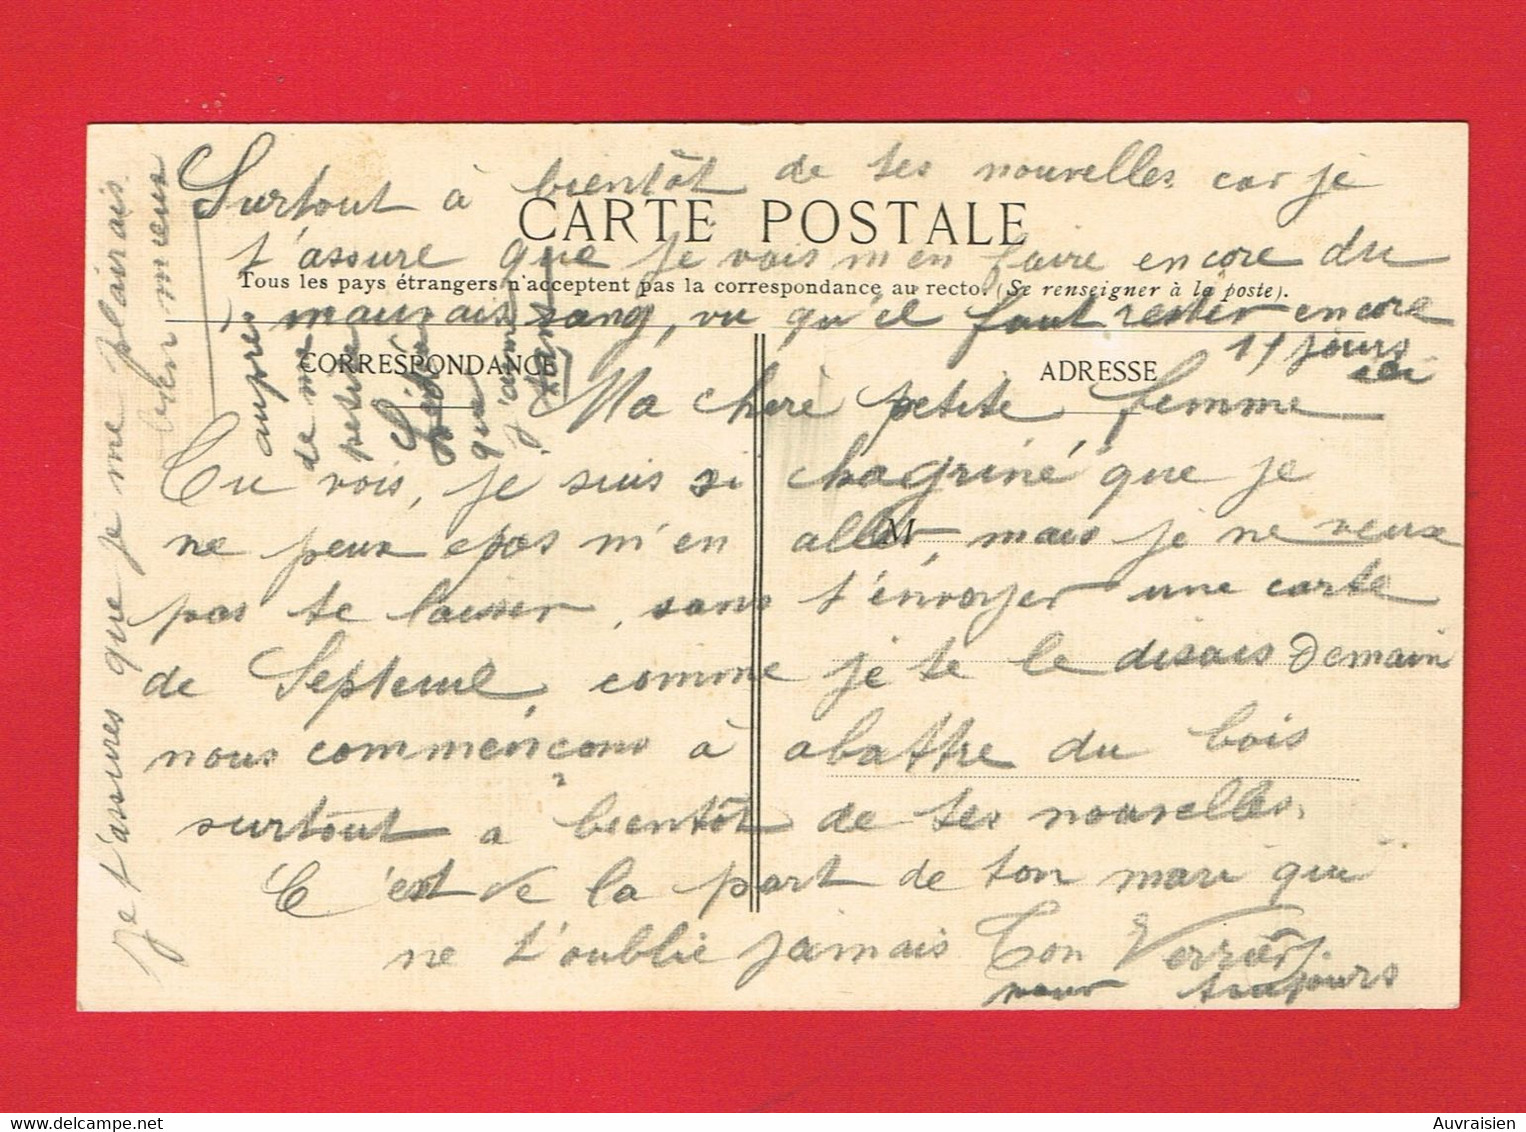 Surtout à bientôt de tes nouvelles car je
CARTE POSTALE
t'assure que je vois m'en faire encore du
Tous les pays étrangers n'acceptent pas la correspondance au recto. (Se renseigner à la poste).
mauvais sang, vu qu'il faut rester encore
jours
ici
CORRESPONDANCE
ADRESSE
Ma chère petite femme
Tu vois, je suis si chagriné que je
M
ne peux pas m'en aller, mais je ne veux
pas te laisser, sans t'envoyer une carte
de Septeuil, comme je te le disais Demain
nous commençons à abattre du bois
surtout a bientôt de tes nouvelles.
C'est de la part de ton mari qui
ne t'oublie jamais Ton
pour toujours
je t'assures que je me plairais
bien mieux
auprès
de ma
petite
que
j'aime
tant
Auvraisien